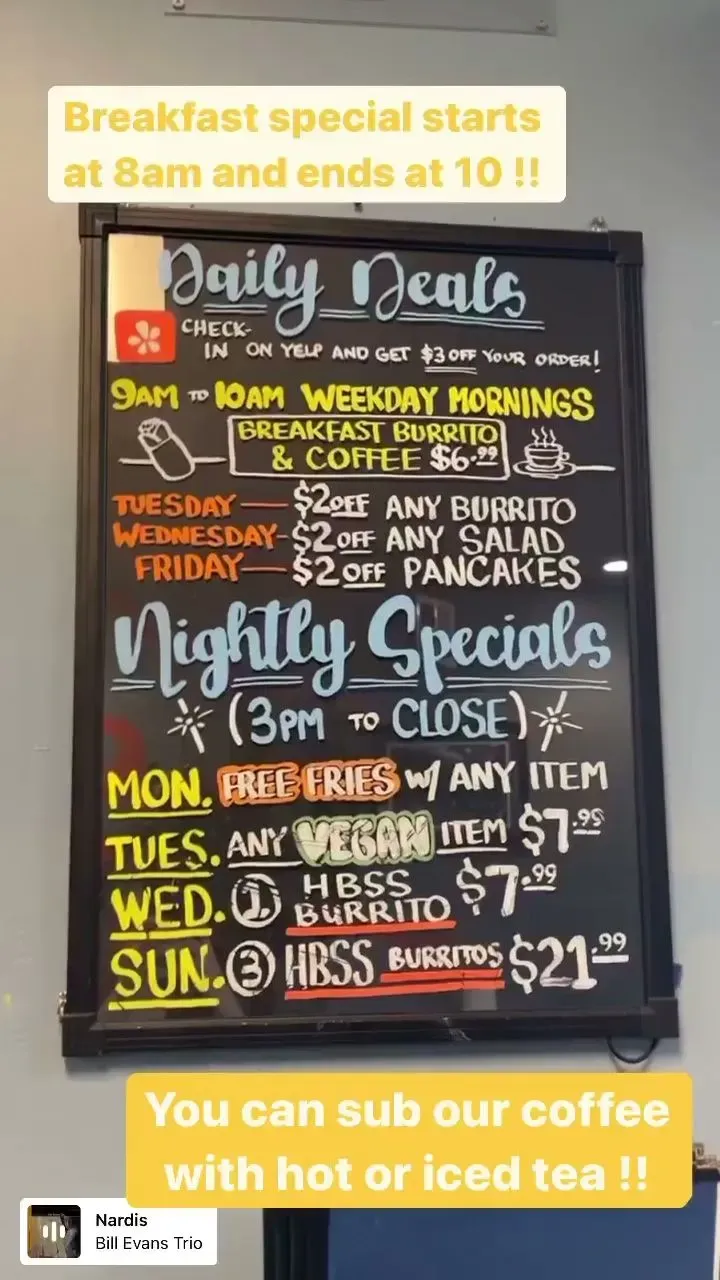 Breakfast special starts
at 8am and ends at 10 !!
Daily Deals
CHECK-
IN ON YELP AND GET $3 OFF YOUR ORDER!
9AM TO 10AM WEEKDAY MORNINGS
BREAKFAST BURRITO
& COFFEE $6.99
TUESDAY — $2 OFF ANY BURRITO
WEDNESDAY - $2 OFF ANY SALAD
FRIDAY — $2 OFF PANCAKES
Nightly Specials
(3PM TO CLOSE)
MON. FREE FRIES w/ ANY ITEM
TUES. ANY VEGAN ITEM $7.99
WED. 1 HBSS BURRITO $7.99
SUN. 3 HBSS BURRITOS $21.99
You can sub our coffee
with hot or iced tea !!
Nardis
Bill Evans Trio